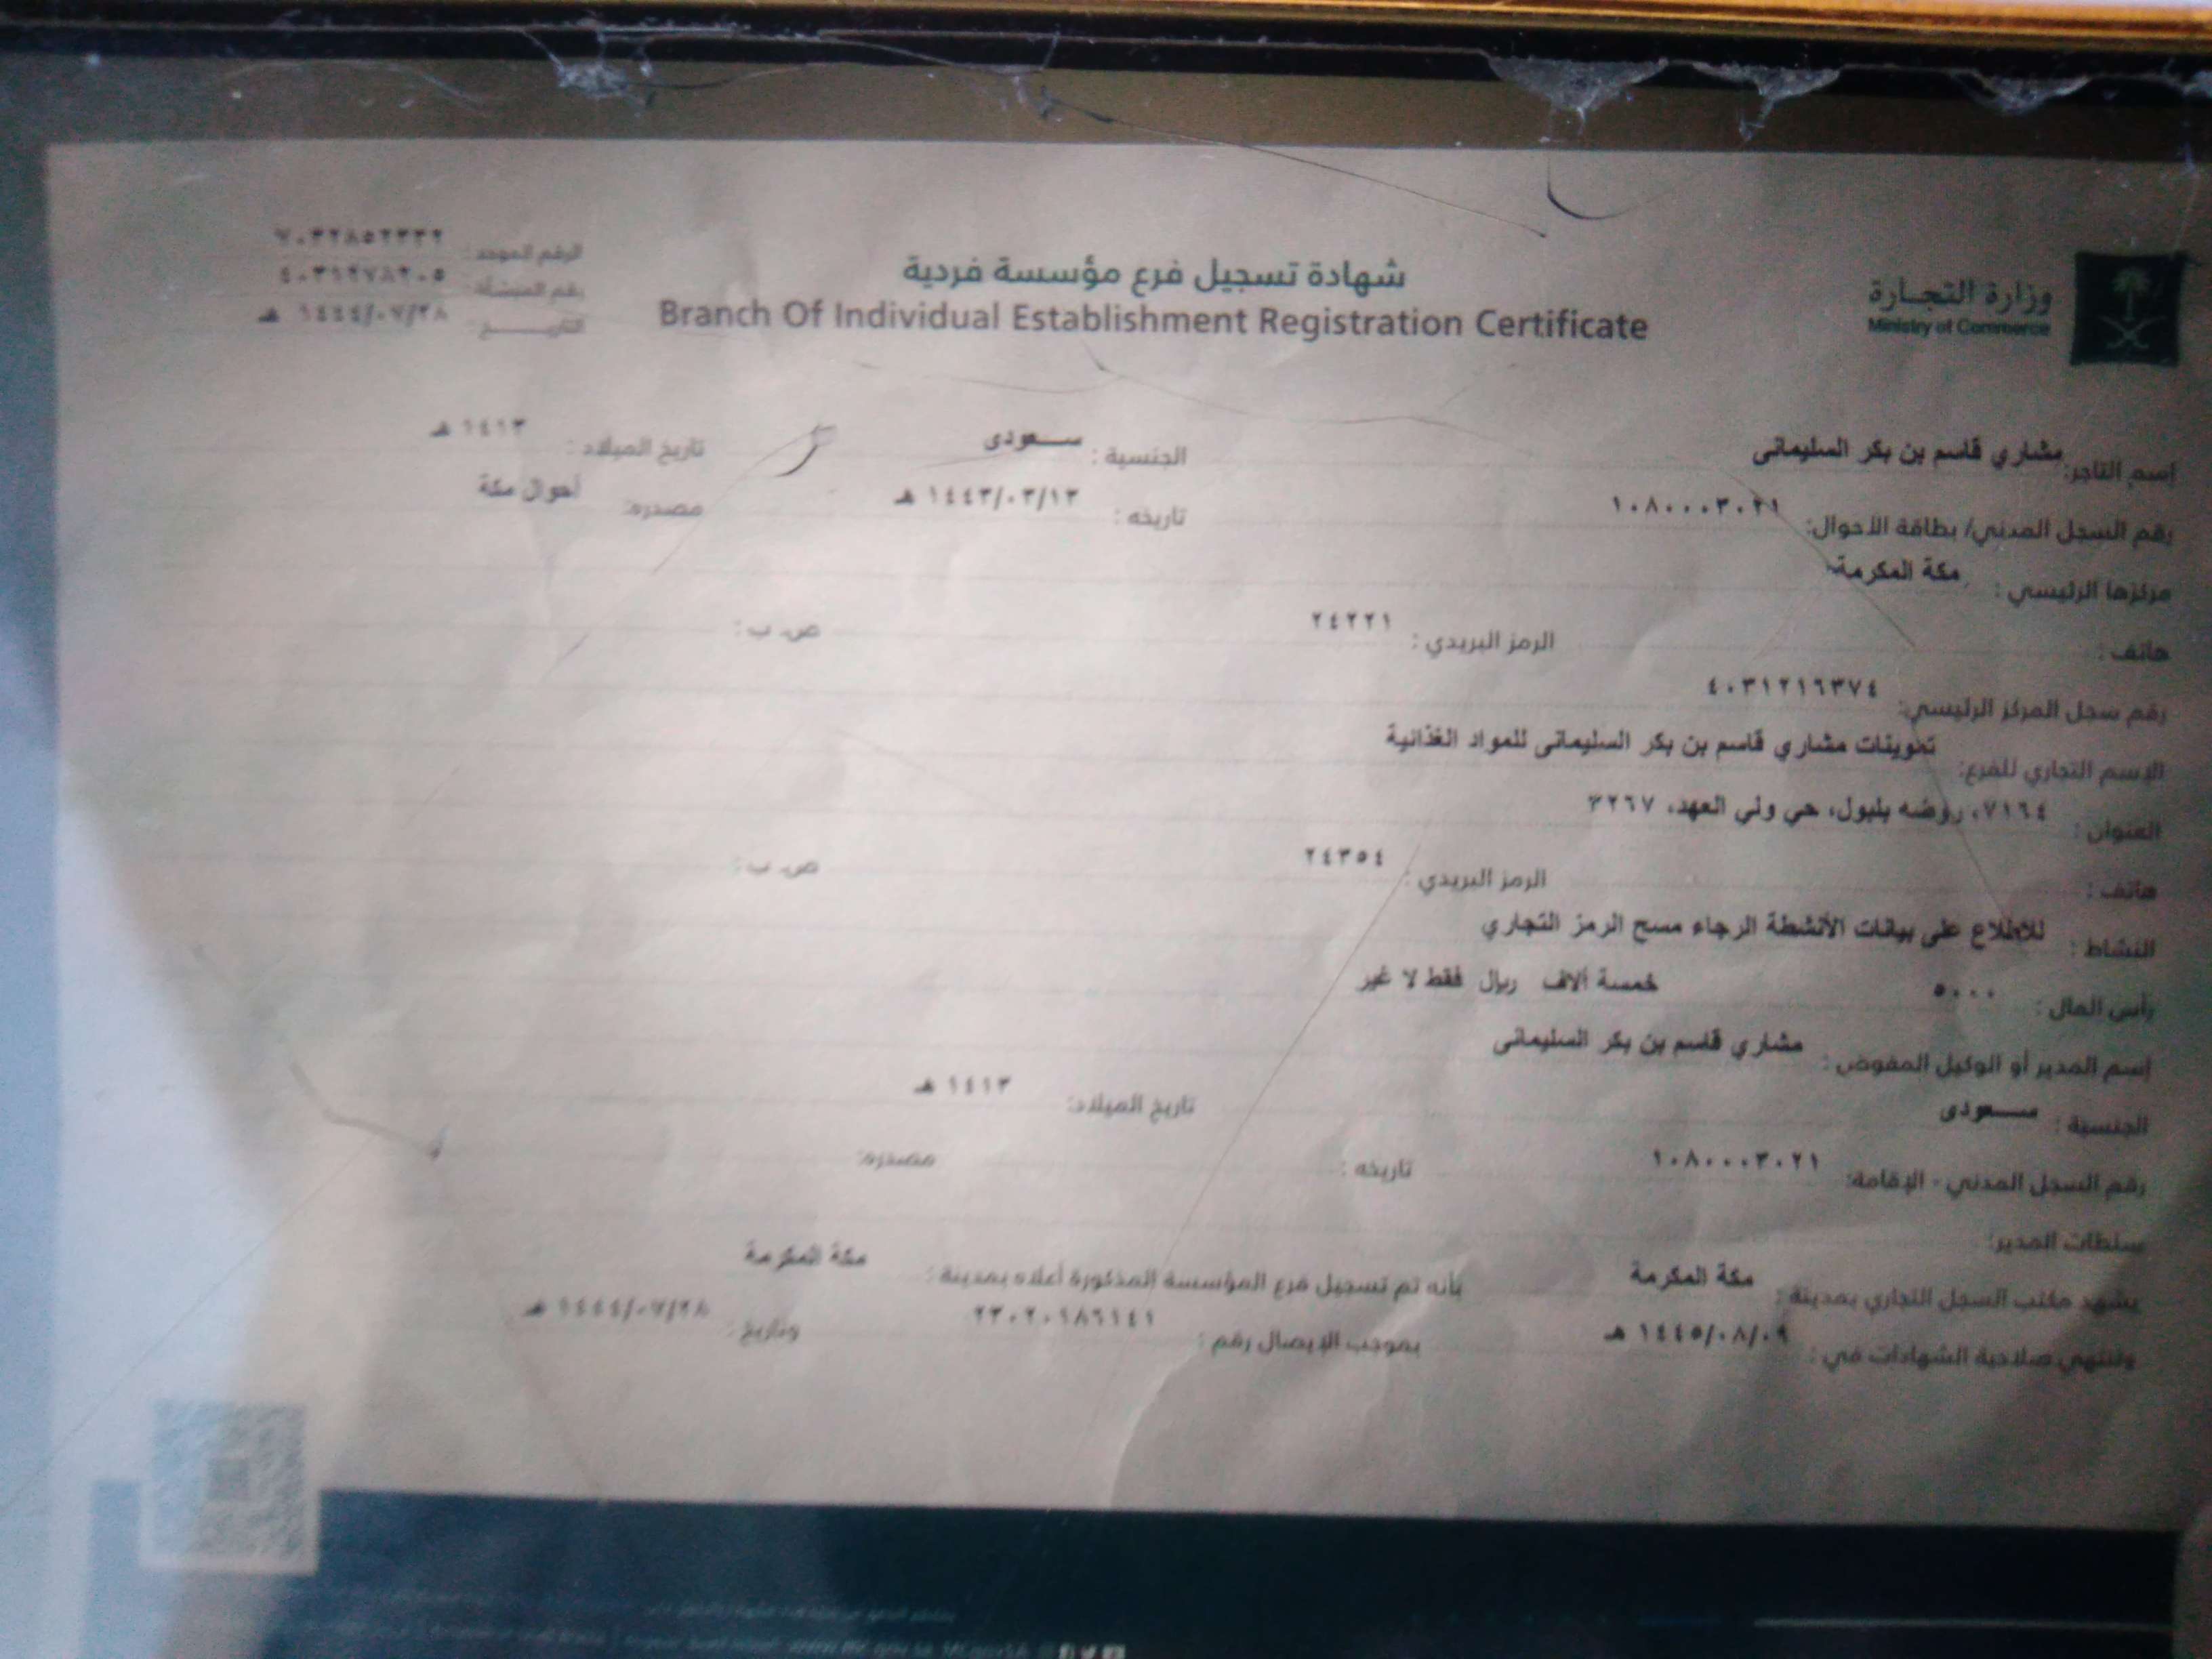 وزارة التجارة
Ministry of Commerce
شهادة تسجيل فرع مؤسسة فردية
Branch Of Individual Establishment Registration Certificate
الرقم الموحد :
رقم المنشأة : ٤٠٣١٢٧٨٢٠٥
التاريخ : ١٤٤٤/٠٧/٢٨ هـ
إسم التاجر: مشاري قاسم بن بكر السليمانى الجنسية : سعودى تاريخ الميلاد : ١٤١٣ هـ
رقم السجل المدني/ بطاقة الأحوال: ١٠٨٠٠٠٣٠٢١ تاريخه : ١٤٤٣/٠٣/١٣ هـ مصدره: أحوال مكة
مركزها الرئيسي : مكة المكرمة
هاتف : الرمز البريدي : ٢٤٢٢١ ص. ب :
رقم سجل المركز الرئيسي: ٤٠٣١٢١٦٣٧٤
الإسم التجاري للفرع: تموينات مشاري قاسم بن بكر السليمانى للمواد الغذائية
العنوان : ٧١٦٤، روضه بلبول، حي ولي العهد، ٣٢٦٧
هاتف : الرمز البريدي : ٢٤٣٥٤ ص. ب :
النشاط : للاطلاع على بيانات الأنشطة الرجاء مسح الرمز التجاري
رأس المال : ٥٠٠٠ خمسة ألاف ريال فقط لا غير
إسم المدير أو الوكيل المفوض : مشاري قاسم بن بكر السليمانى
الجنسية : سعودى تاريخ الميلاد: ١٤١٣ هـ
رقم السجل المدني - الإقامة: ١٠٨٠٠٠٣٠٢١ تاريخه : مصدره:
سلطات المدير:
يشهد مكتب السجل التجاري بمدينة : مكة المكرمة بأنه تم تسجيل فرع المؤسسة المذكورة أعلاه بمدينة : مكة المكرمة
وتنتهي صلاحية الشهادات في : ١٤٤٥/٠٨/٠٩ هـ بموجب الإيصال رقم : ٢٣٠٢٠١٨٦١٤١ وتاريخ : ١٤٤٤/٠٧/٢٨ هـ